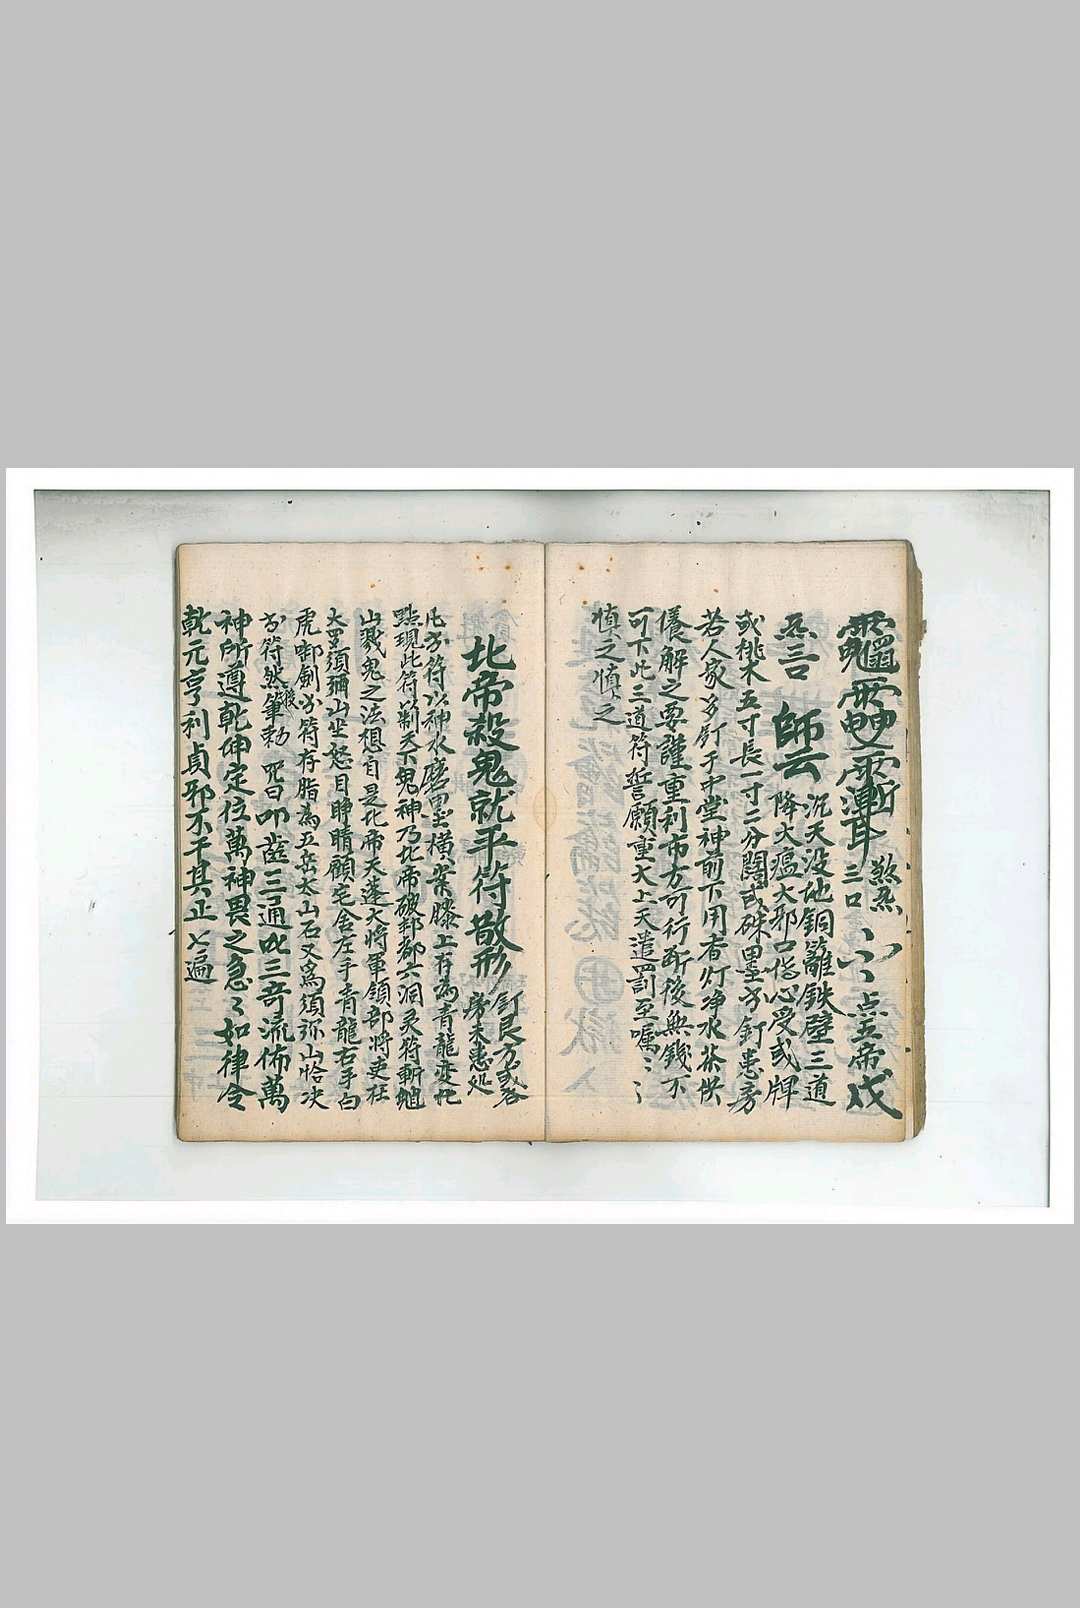 耳 三口 煞 点玉帝戌
沉天没地銅籬鉄壁三道
言 師云 降大瘟大邪口傷心受或牌
或桃木五寸長一寸二分闊或硃墨书釘患房
若人家多釘于中堂神前下用香灯净水茶供
養解之要謹重利市方可行所後無錢不
可下此三道符誓願重大上天遣罰至嘱〻〻
慎之慎之
北帝殺鬼就手符散形 釘艮方或各
旁未患処
凡书符以神水磨墨横案膝上存為青龍变化
點現此符以制天下鬼神乃北帝破酆都六洞灵符斬馗
山戮鬼之法想自是北帝天蓬大將軍領部將吏在
大羅須彌山坐怒目睜睛顧宅舍左手青龍右手白
虎啣劍书符存脂為五岳太山石又為須弥山恰决
书符然後筆勅 咒曰叩齒三通 三奇流佈萬
神所遵乾坤定位萬神畏之急〻如律令
乾元亨利貞邪不干其正 七遍